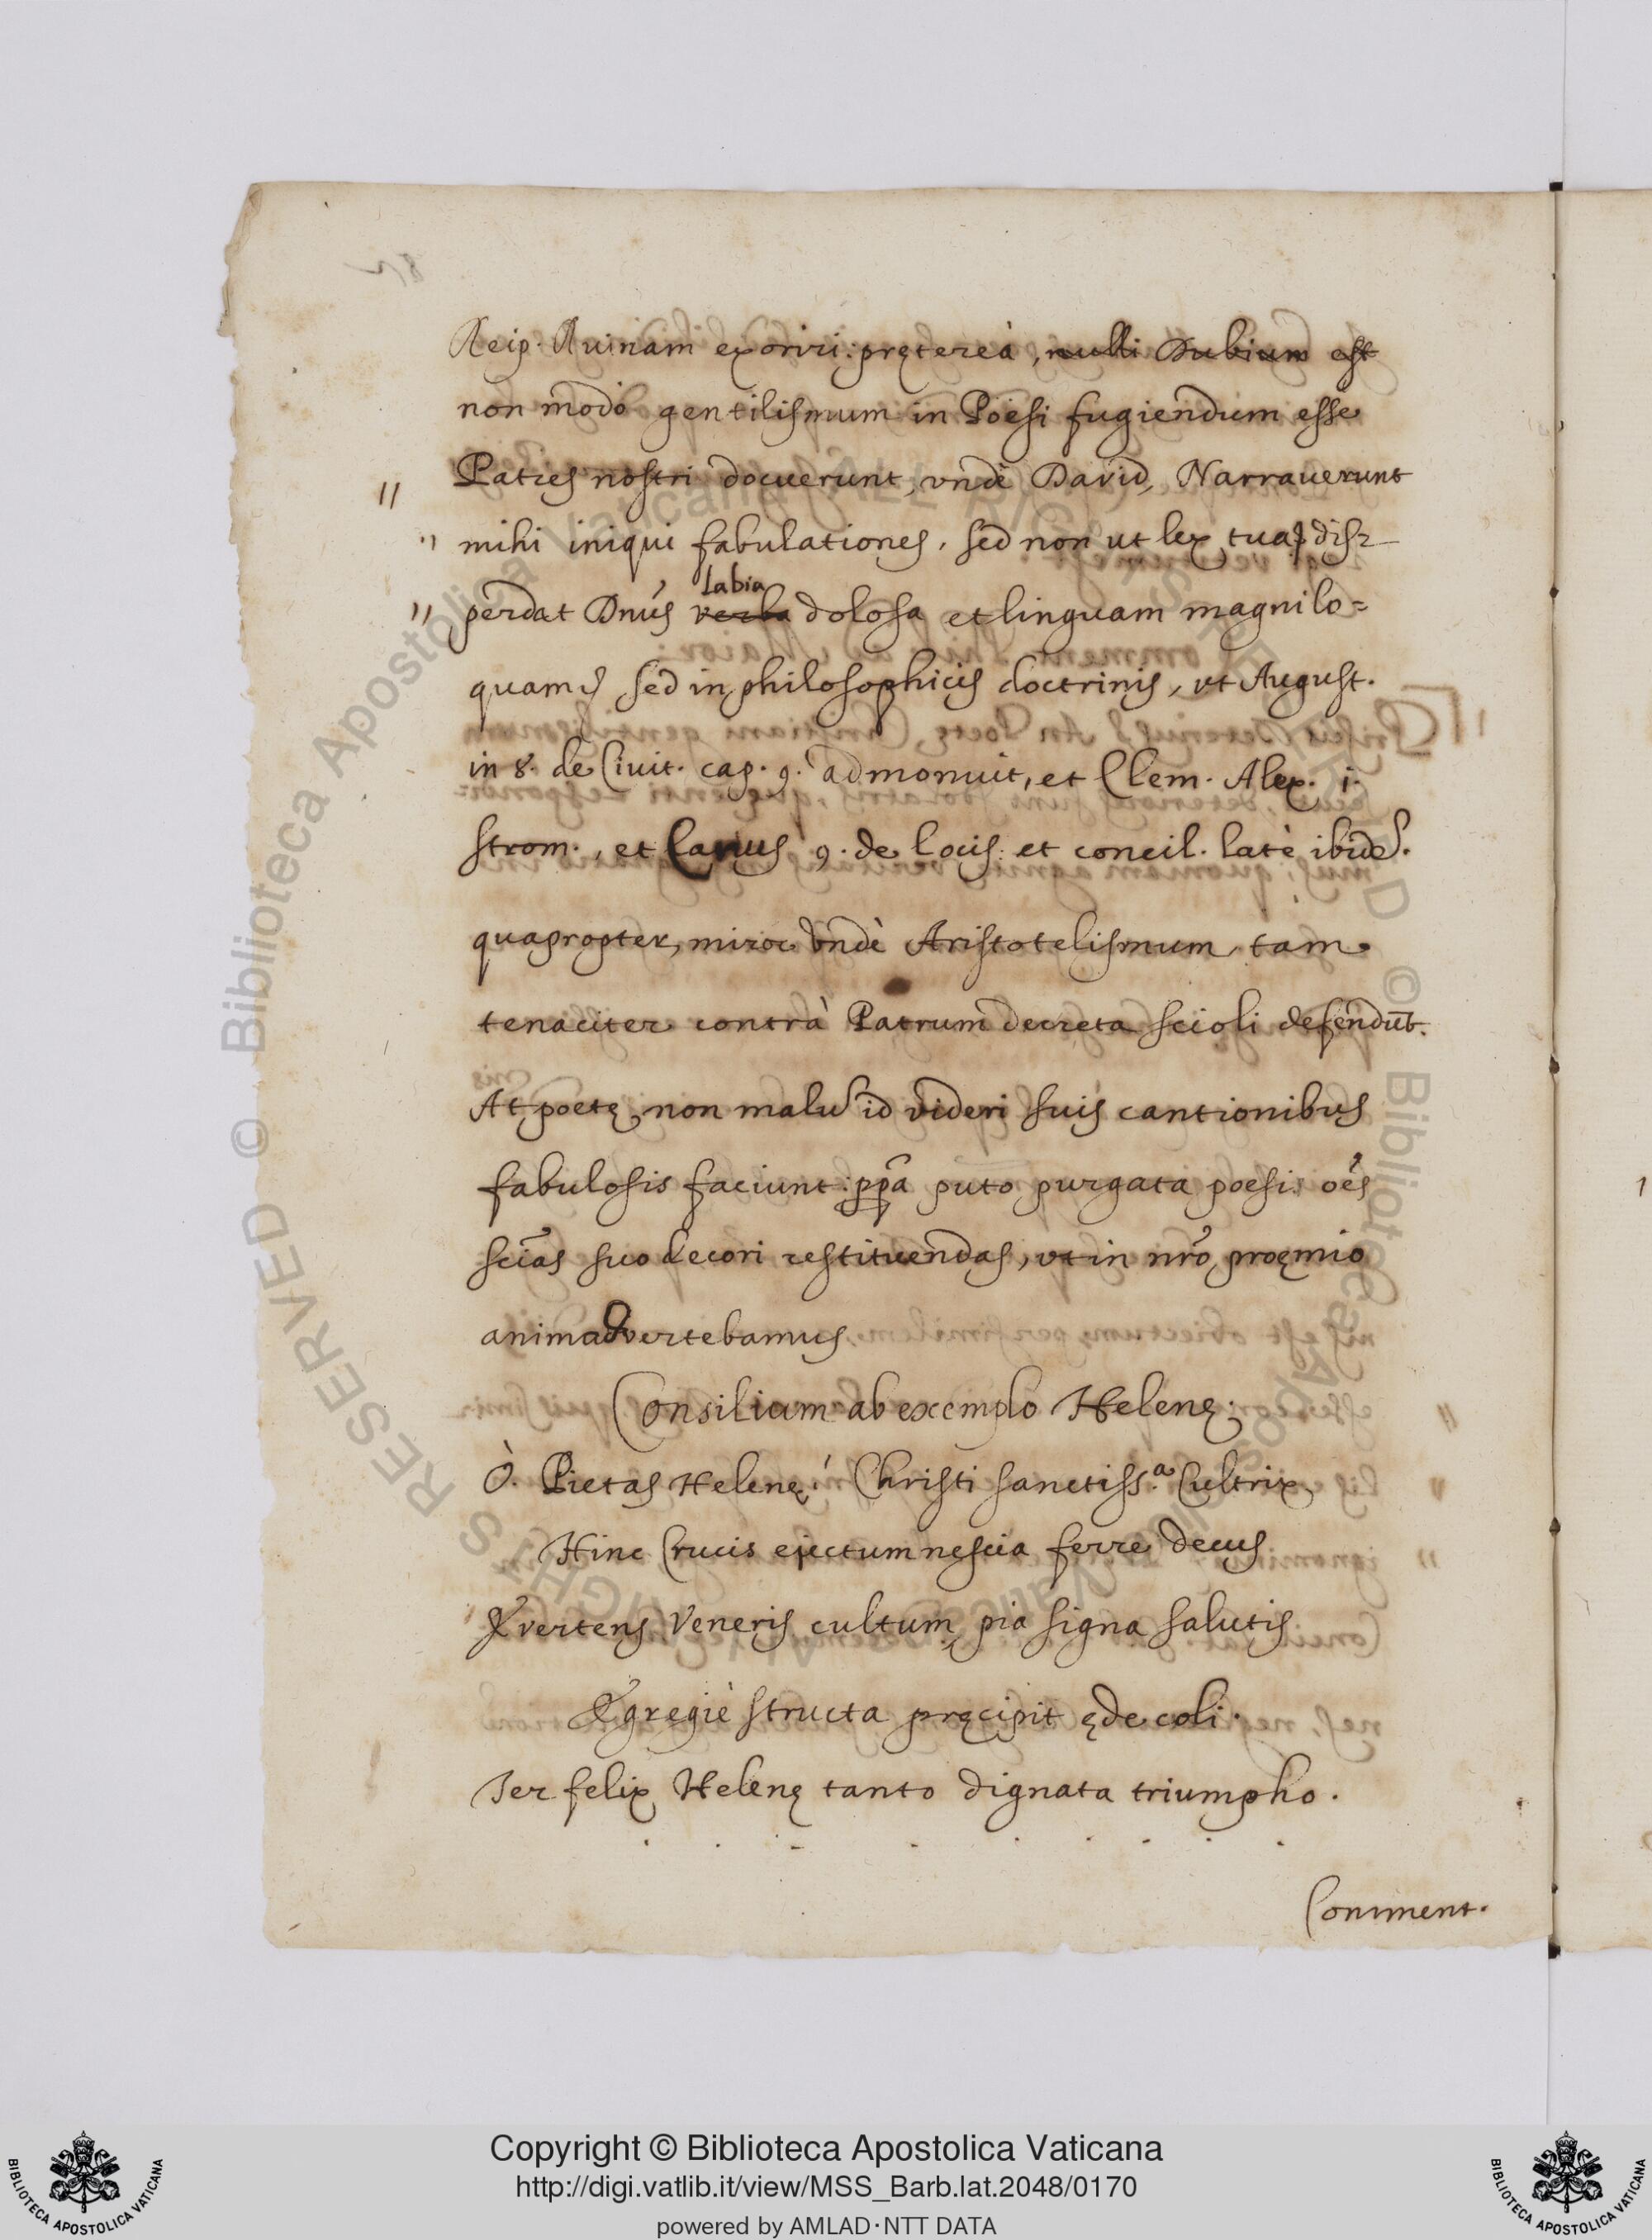 Reip. Ruinam exoriri: pręterea, nulli dubium est
non modò gentilismum in Poësi fugiendum esse
Patres nostri docuerunt, vndè David, Narrauerunt
mihi iniqui fabulationes, sed non ut lex tua, dis=
perdat Dnũs verba Labia dolosa et linguam magnilo=
quam, sed in philosophicis doctrinis, vt August.
in 8. de Ciuit. cap. 9. admonuit, et Clem. Alex. i.
strom., et Canus 9. de locis: et concil. latè ibidẽ.
quapropter, miror vndè Aristotelismum tam
tenaciter contrà Patrum decreta scioli defendũt.
At poetę non malũ id videri suis cantionibus
fabulosis faciunt: ppa puto purgata poesi oẽs
sciãs suo decori restituendas, vt in nrõ proęmio
animaduertebamus
Consilium ab exemplo Helenę.
Ò. Pietas Helenę! Christi sanctiss.a Cultrix
Hinc Crucis ejectum nescia ferre decus
Evertens Veneris cultum, pia signa salutis
Egregiè structa pręcipit ęde coli.
Ter felix Helenę tanto dignata triumpho.
Comment.
© Biblioteca Apostolica Vaticana ALL RIGHTS RESERVED
© Biblioteca Apostolica Vaticana ALL RIGHTS RESERVED
Copyright © Biblioteca Apostolica Vaticana
http://digi.vatlib.it/view/MSS_Barb.lat.2048/0170
powered by AMLAD·NTT DATA
BIBLIOTECA APOSTOLICA VATICANA
BIBLIOTECA APOSTOLICA VATICANA